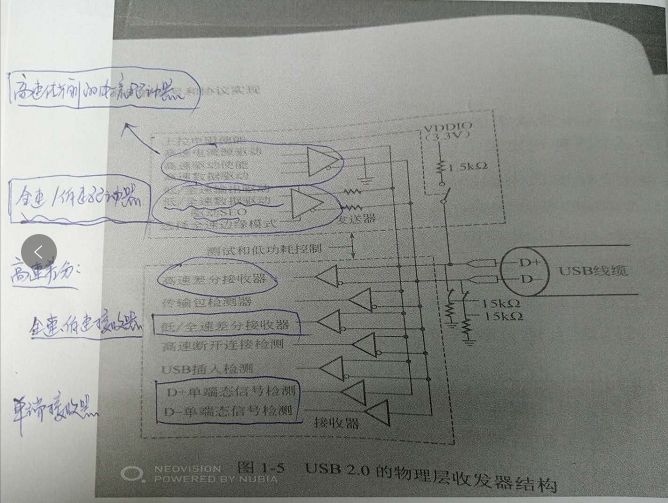 和协议实现
高速传输的电流驱动器
上拉电阻使能
高速电流源驱动
高速驱动使能
高速数据驱动
VDDIO
(3.3V)
1.5kΩ
全速/低速驱动器
低/全速数据驱动
驱动SE0
低/全速边缘模式
发送器
测试和低功耗控制
高速差分:
高速差分接收器
D+
D-
USB线缆
传输包检测器
15kΩ
15kΩ
全速低速接收器
低/全速差分接收器
高速断开连接检测
USB插入检测
单端接收器
D+单端态信号检测
D-单端态信号检测
接收器
图 1-5 USB 2.0 的物理层收发器结构
NEOVISION
POWERED BY NUBIA